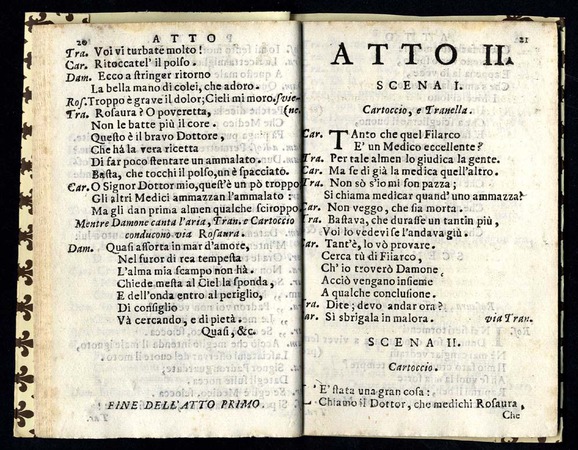 20 ATTO
Tra. Voi vi turbate molto!
Car. Ritoccatel' il polso.
Dam. Ecco a stringer ritorno
La bella mano di colei, che adoro.
Ros. Troppo è grave il dolor; Cieli mi moro. svie-
Tra. Rosaura? O poveretta, (ne.
Non le batte più il core.
Questo è il bravo Dottore,
Che hà la vera ricetta
Di far poco stentare un ammalato.
Basta, che tocchi il polso, un è spacciato.
Car. O Signor Dottor mio, quest'è un pò troppo
Gli altri Medici ammazzan l'ammalato:
Ma gli dan prima almen qualche sciroppo
Mentre Damone canta l'aria, Tran. e Cartoccio
conducono via Rosaura.
Dam. Quasi assorta in mar d'amore,
Nel furor di rea tempesta
L'alma mia scampo non hà.
Chiede mesta al Ciel la sponda,
E dell'onda entro al periglio,
Di consiglio
Và cercando, e di pietà.
Quasi, &c.
FINE DELL'ATTO PRIMO.
21
ATTO II.
SCENA I.
Cartoccio, e Tranella.
Car. TAnto che quel Filarco
E' un Medico eccellente?
Tra. Per tale almen lo giudica la gente.
Car. Ma se di già la medica quell'altro.
Tra. Non sò s'io mi son pazza;
Si chiama medicar quand'uno ammazza?
Car. Non veggo, che sia morta.
Tra. Bastava, che durasse un tantin più,
Voi lo vedevi se l'andava giù.
Car. Tant'è, lo vò provare.
Cerca tù di Filarco,
Ch' io troverò Damone,
Acciò vengano insieme
A qualche conclusione.
Tra. Dite; devo andar ora?
Car. Sì sbrigala in malora. via Tran.
SCENA II.
Cartoccio.
L' E' stata una gran cosa:
Chiamo il Dottor, che medichi Rosaura,
Che